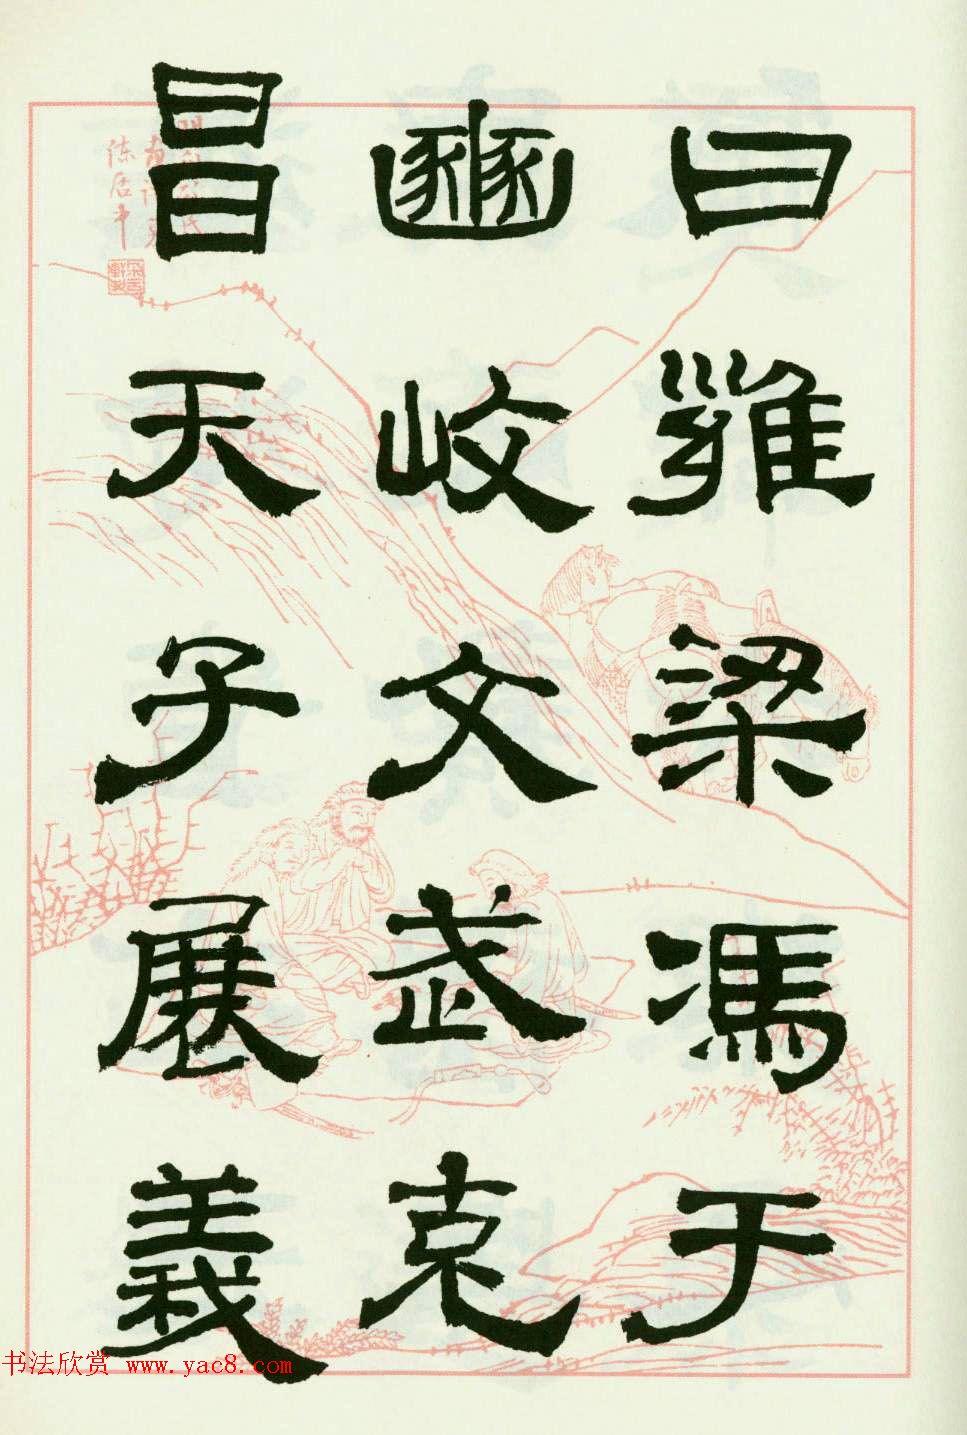 曰雍梁馮于
豳岐文武克
昌天子展義
陈居中
书法欣赏 www.yac8.com